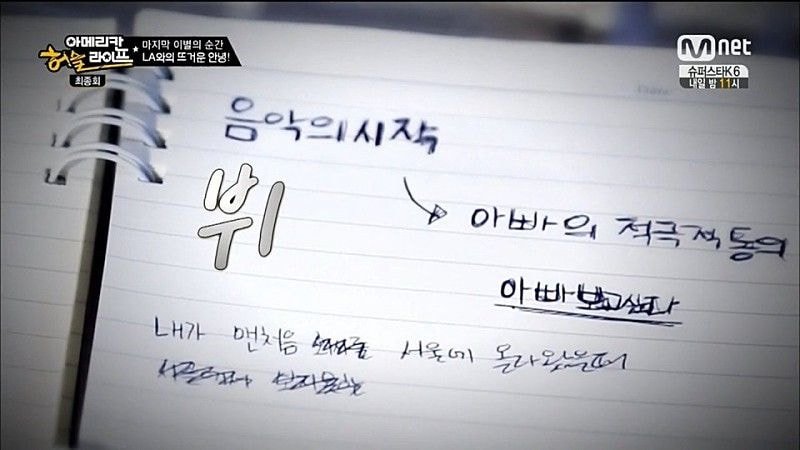 아메리카
허슬 라이프
최종회
마지막 이별의 순간
LA와의 뜨거운 안녕!
Mnet
슈퍼스타K6
내일 밤 11시
음악의 시작
뷔
아빠의 적극적 동의
아빠 보고싶다
내가 맨처음 서울에 올라왔을때